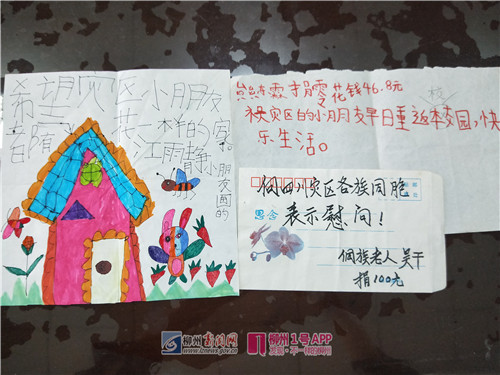 希望灾区小朋友
都有一个花一样的家
江雨静小朋友画的
捐零花钱46.8元
祝灾区的小朋友早日重返校园,快
乐生活。
向四川灾区各族同胞
思念
表示慰问!
侗族老人吴干
捐100元
柳州新闻网
www.lznews.gov.cn
柳州1号APP